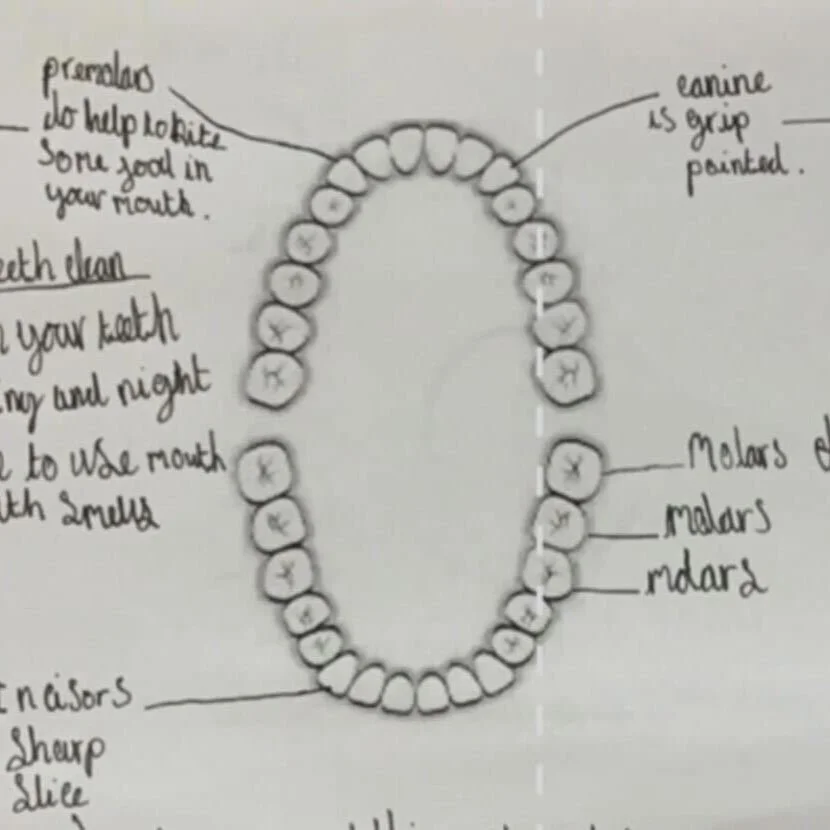 premolars
do help to bite
some food in
your mouth.
canine
is grip
pointed.
eeth clean
your teeth
ing and night
to use mouth
th smells
Molars
molars
molars
incisors
sharp
slice